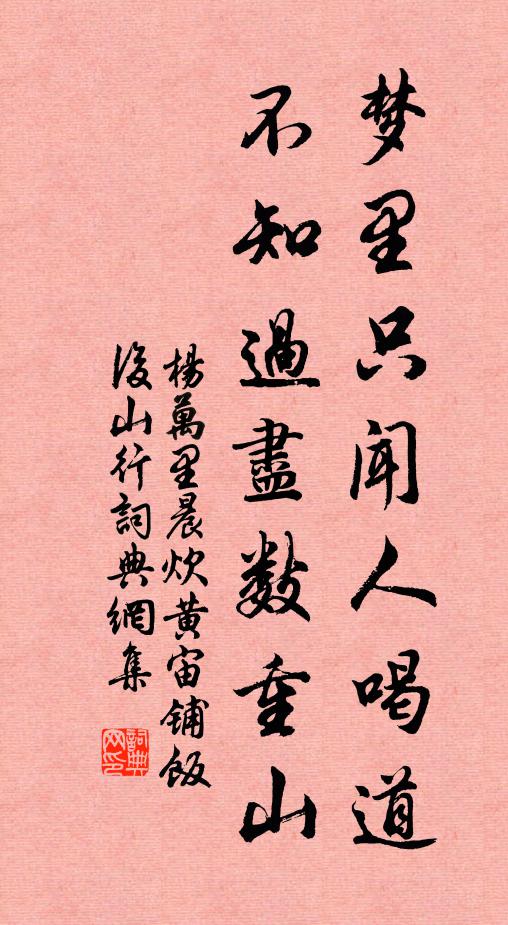 梦里只闻人喝道
不知過盡數重山
楊萬里晨炊黄宙铺飯
後山行詞典網集
詞典
网印